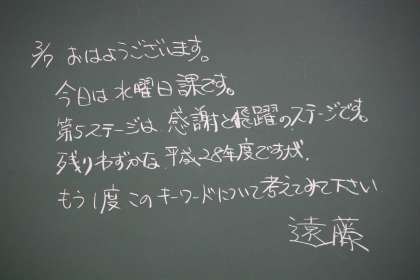 3/7 おはようございます。
今日は水曜日課です。
第5ステージは、感謝と飛躍のステージです。
残りわずかな平成28年度ですが、
もう1度このキーワードについて考えてみて下さい
遠藤